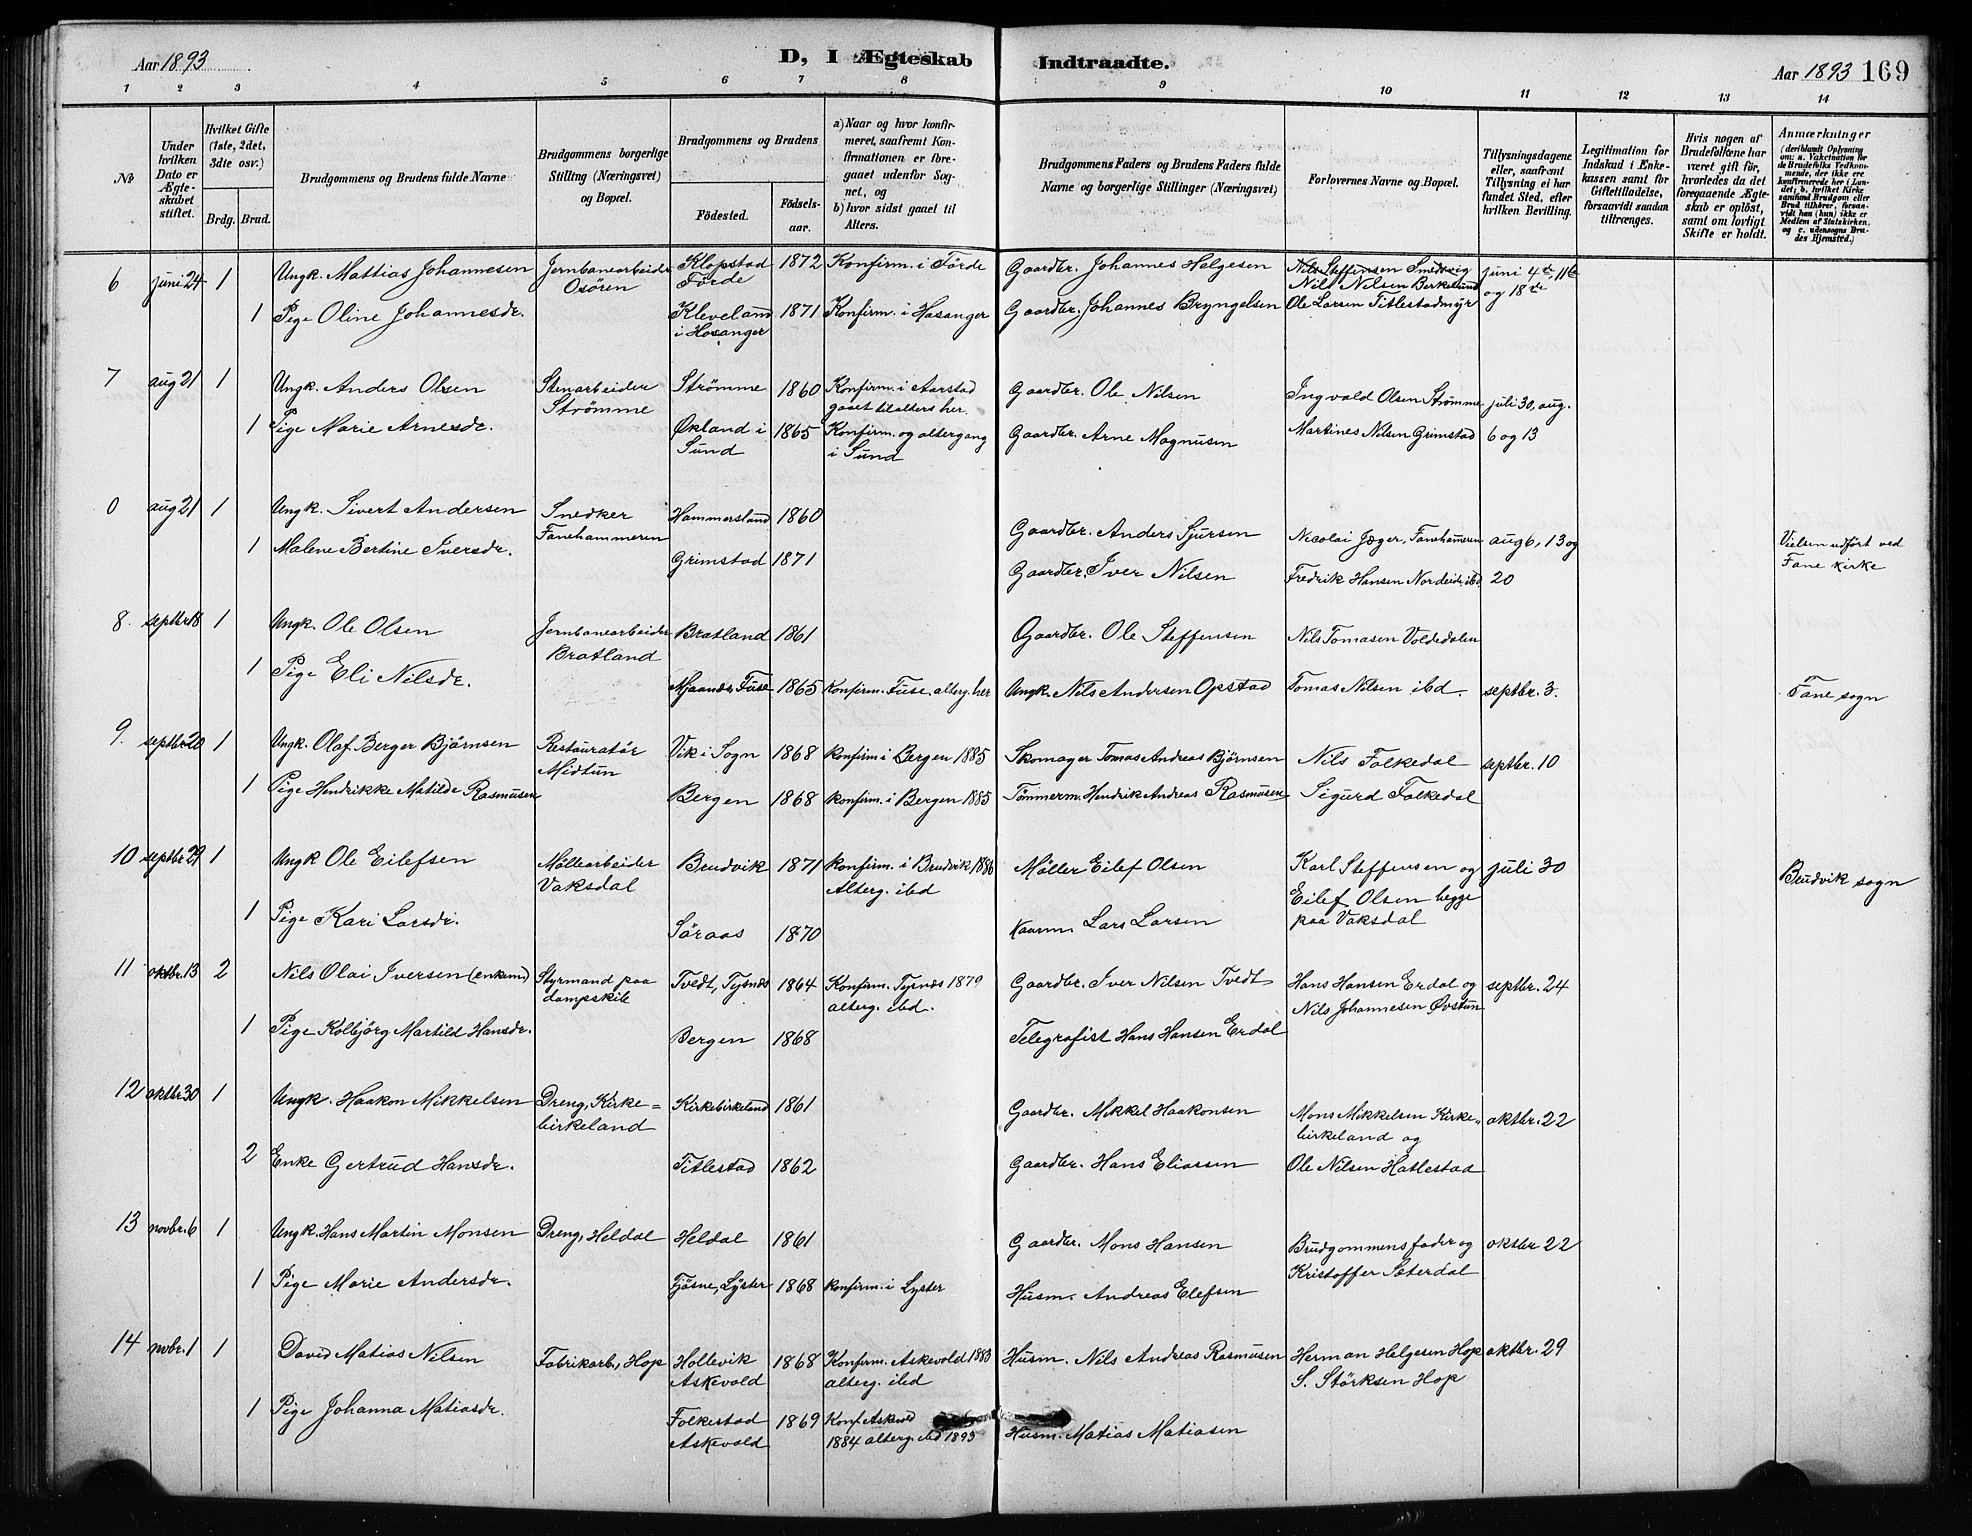 Aar 1893
D, I Ægteskab Indtraadte.
Aar 1893 169
1 2 3 4 5 6 7 8 9 10 11 12 13 14
№
Under hvilken Dato er Ægteskabet stiftet.
Hvilket Gifte (1ste, 2det, 3dte osv.)
Brdg. Brud.
Brudgommens og Brudens fulde Navne
Brudgommens borgerlige Stilling (Næringsvei) og Bopæl.
Brudgommens og Brudens
Fødested.
Fødsels-aar.
a) Naar og hvor konfirmeret, saafremt Konfirmationen er foregaaet udenfor Sognet, og
b) hvor sidst gaaet til Alters.
Brudgommens Faders og Brudens Faders fulde Navne og borgerlige Stillinger (Næringsvei)
Forlovernes Navne og Bopæl.
Tillysningsdagene eller, saafremt Tillysning ei har fundet Sted, efter hvilken Bevilling.
Legitimation for Indskud i Enkekassen samt for Giftetilladelse, forsaavidt saadan tiltrænges.
Hvis nogen af Brudefolkene har været gift før, hvorledes da det foregaaende Ægteskab er opløst, samt om lovligt Skifte er holdt.
Anmærkninger (deriblandt Oplysning om: a. Vakcination for de Brudefolks Vedkommende, der ikke ere konfirmerede her i Landet; b. hvilket Kirkesamfund Brudgom eller Brud tilhører, forsaavidt han (hun) ikke er Medlem af Statskirken, og c. udensogns Brudes Hjemsted.)
6 juni 24 1 Ungk. Mattias Johannesen Jernbanearbeider Osören Klopstad Förde 1872 Konfirm. i Förde Gaardbr. Johannes Helgesen Nils Steffensen Smedsvig Nils Nilsen Birkelund juni 4de, 11te og 18de
1 Pige Oline Johannesdr. Kleveland i Hosanger 1871 Konfirm. i Hosanger Gaardbr. Johannes Bryngelsen Ole Larsen Titlestadmyr
7 aug 21 1 Ungk. Anders Olsen Stenarbeider Strömme Strömme 1860 Konfirm. i Aarstad gaaet til alters her. Gaardbr. Ole Nilsen Ingvald Olsen Strömme juli 30, aug.
1 Pige Marie Arnesdr. Økland i Sund 1865 Konfirm. og altergang i Sund Gaardbr. Arne Magnusen Martines Nilsen Grimstad 6 og 13
0 aug 21 1 Ungk. Sivert Andersen Snedker Fanehammeren Hammersland 1860 Gaardbr. Anders Sjursen Nicolai Jæger, Fanehameren aug 6, 13 og Vielsen udført ved Fane kirke
1 Malene Bertine Iversdr. Grimstad 1871 Gaardbr. Iver Nilsen Fredrik Hansen Nordeide, ibd 20
8. septbr 18 1 Ungk. Ole Olsen Jernbanearbeider Bratland Bratland 1861 Gaardbr. Ole Steffensen Nils Tomasen Voldedalen
1 Pige Eli Nilsdr. Mjaanes, Fuse 1865 Konfirm. Fuse, alterg. her Ungk. Nils Andersen Opstad Tomas Nilsen ibd. septbr. 3. Fane sogn
9. septbr 20 1 Ungk. Olaf Berger Björnsen Restauratör Midtun Vik i Sogn 1868 konfirm i Bergen 1885 Skomager Tomas Andreas Björnsen Nils Folkedal septbr. 10
1 Pige Hendrikke Matilde Rasmusen Bergen 1868 konfirm. i Bergen 1885 Tömmerm. Hendrik Andreas Rasmusen Sigurd Folkedal
10 septbr 29 1 Ungk Ole Eilefsen Möllearbeider Vaksdal Brudvik 1871 konfirm. i Brudvik 1886 Alterg. ibd Möller Eilef Olsen Karl Steffensen og Eilef Olsen begge paa Vaksdal juli 30 Brudvik sogn
1 Pige Kari Larsdr. Söraas 1870 Kaarm. Lars Larsen
11 oktbr. 13 2 Nils Olai Iversen (enkemd) Styrmand paa dampskib Tvedt, Tysnæs 1864 Konfirm. Tysnæs 1879 alterg. ibd. Gaardbr. Iver Nilsen Tvedt Hans Hansen Erdal og Nils Johannesen Øvstun septbr. 24
1 Pige Kolbjörg Martild Hansdr. Bergen 1868 Telegrafist Hans Hansen Erdal
12 oktbr 30 1 Ungk. Haakon Mikkelsen Dreng, Kirkebirkeland Kirkebirkeland 1861 Gaardbr. Mikkel Haakonsen Mons Mikkelsen Kirkebirkeland og oktbr. 22
2 Enke Gertrud Hansdr. Titlestad 1862 Gaardbr. Hans Eliassen Ole Nilsen Hatlestad
13 novbr. 6 1 Ungk. Hans Martin Monsen Dreng, Heldal Heldal 1861 Gaardbr. Mons Hansen Brudgommens fader og Kristoffer Sæterdal oktbr 22
1 Pige Marie Andersdr. Fjösne, Lyster 1868 konfirm. i Lyster Husm. Andreas Elefsen
14 novbr. 1 1 David Matias Nilsen Fabrikarb., Hop Hollevik Askevold 1868 Konfirm. Askevold 1883 alterg. ibd Husm. Nils Andreas Rasmusen Herman Helgesen Hop S. Störksen Hop oktbr. 29
1 Pige Johanna Matiasdr. Folkestad Askevold 1869 Konf Askvold 1884 alterg. ibd 1893 Husm. Matias Matiasen